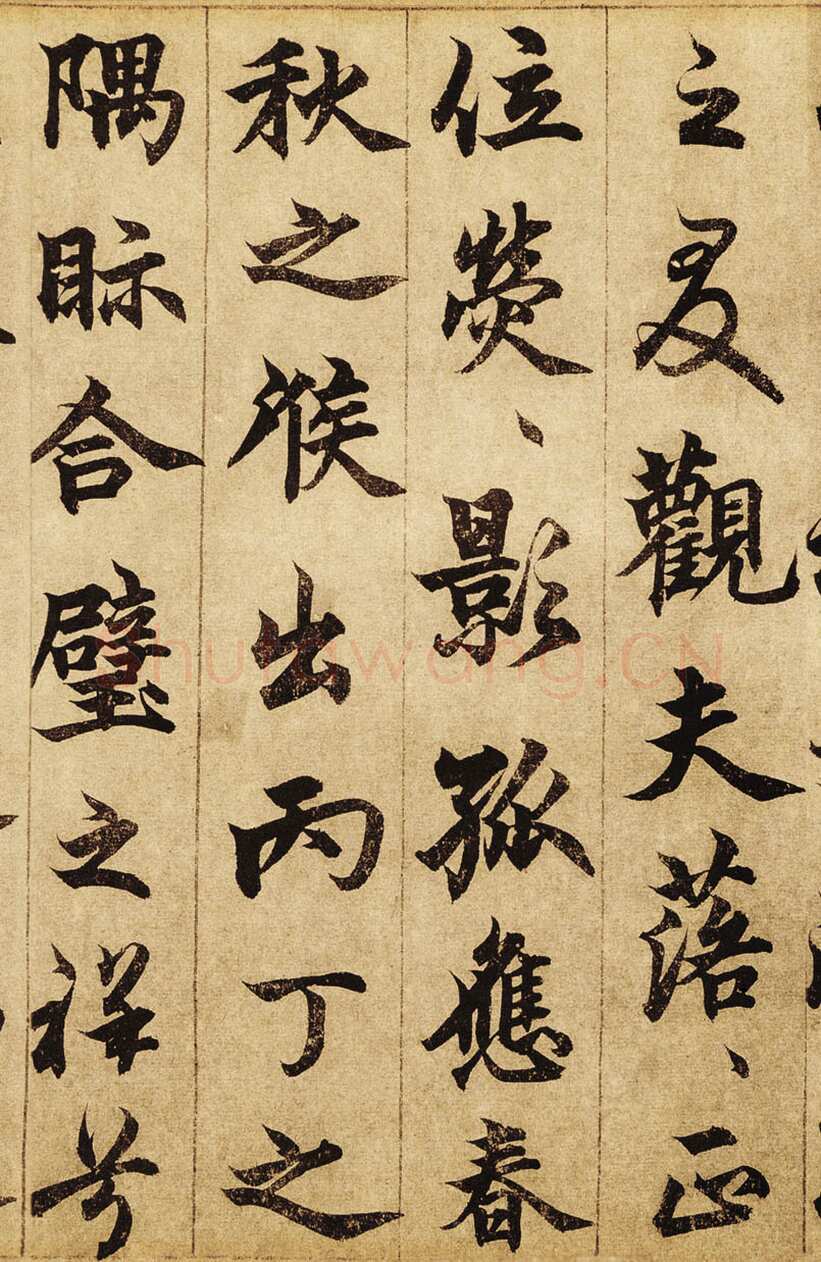 之觀夫落、正
位熒、影孤應春
秋之候出丙丁之
隅眎合璧之祥兮
shufawang.CN